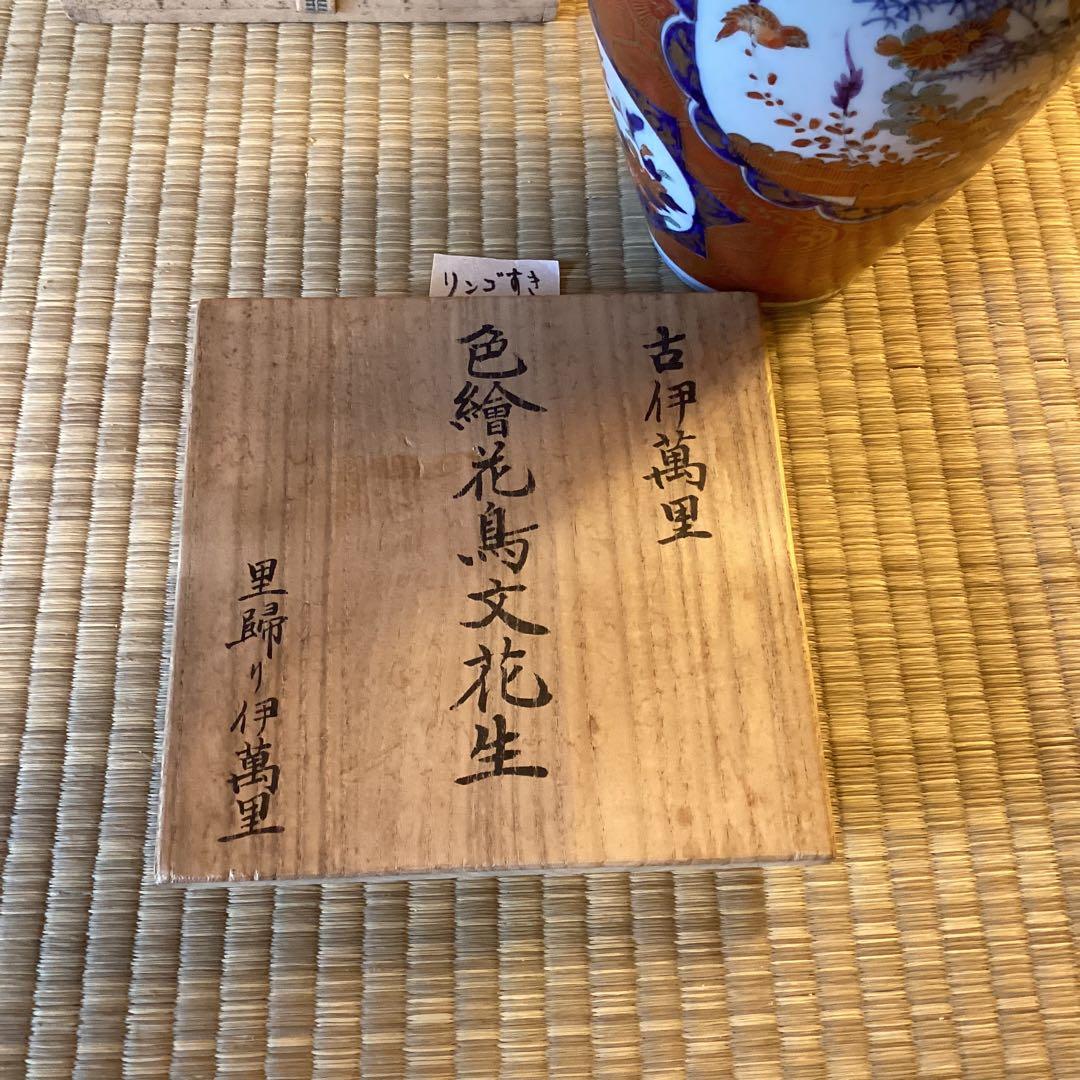 リンゴすき
古伊萬里
色繪花鳥文花生
里歸り伊萬里